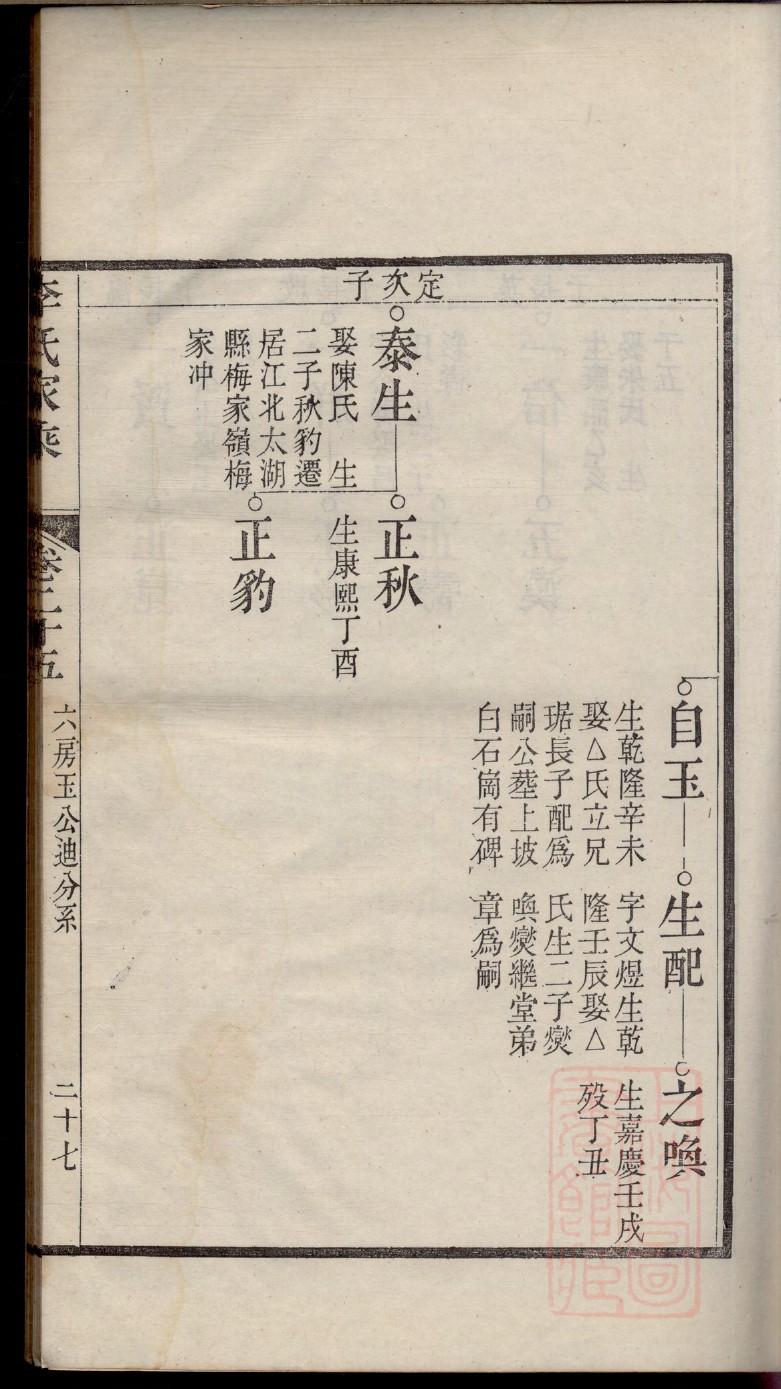 自玉
生乾隆辛未
娶△氏立兄
琚長子配為
嗣公塟上坡
白石崗有碑
生配
字文煜生乾
隆壬辰娶△
氏生二子燮
喚燮繼堂弟
章為嗣
之喚
生嘉慶壬戌
歿丁丑
定次子
泰生
娶陳氏 生
二子秋豹遷
居江北太湖
縣梅家嶺梅
家冲
正秋
生康熙丁酉
正豹
李氏家乘
卷二十五
六房玉公迪分系
二十七